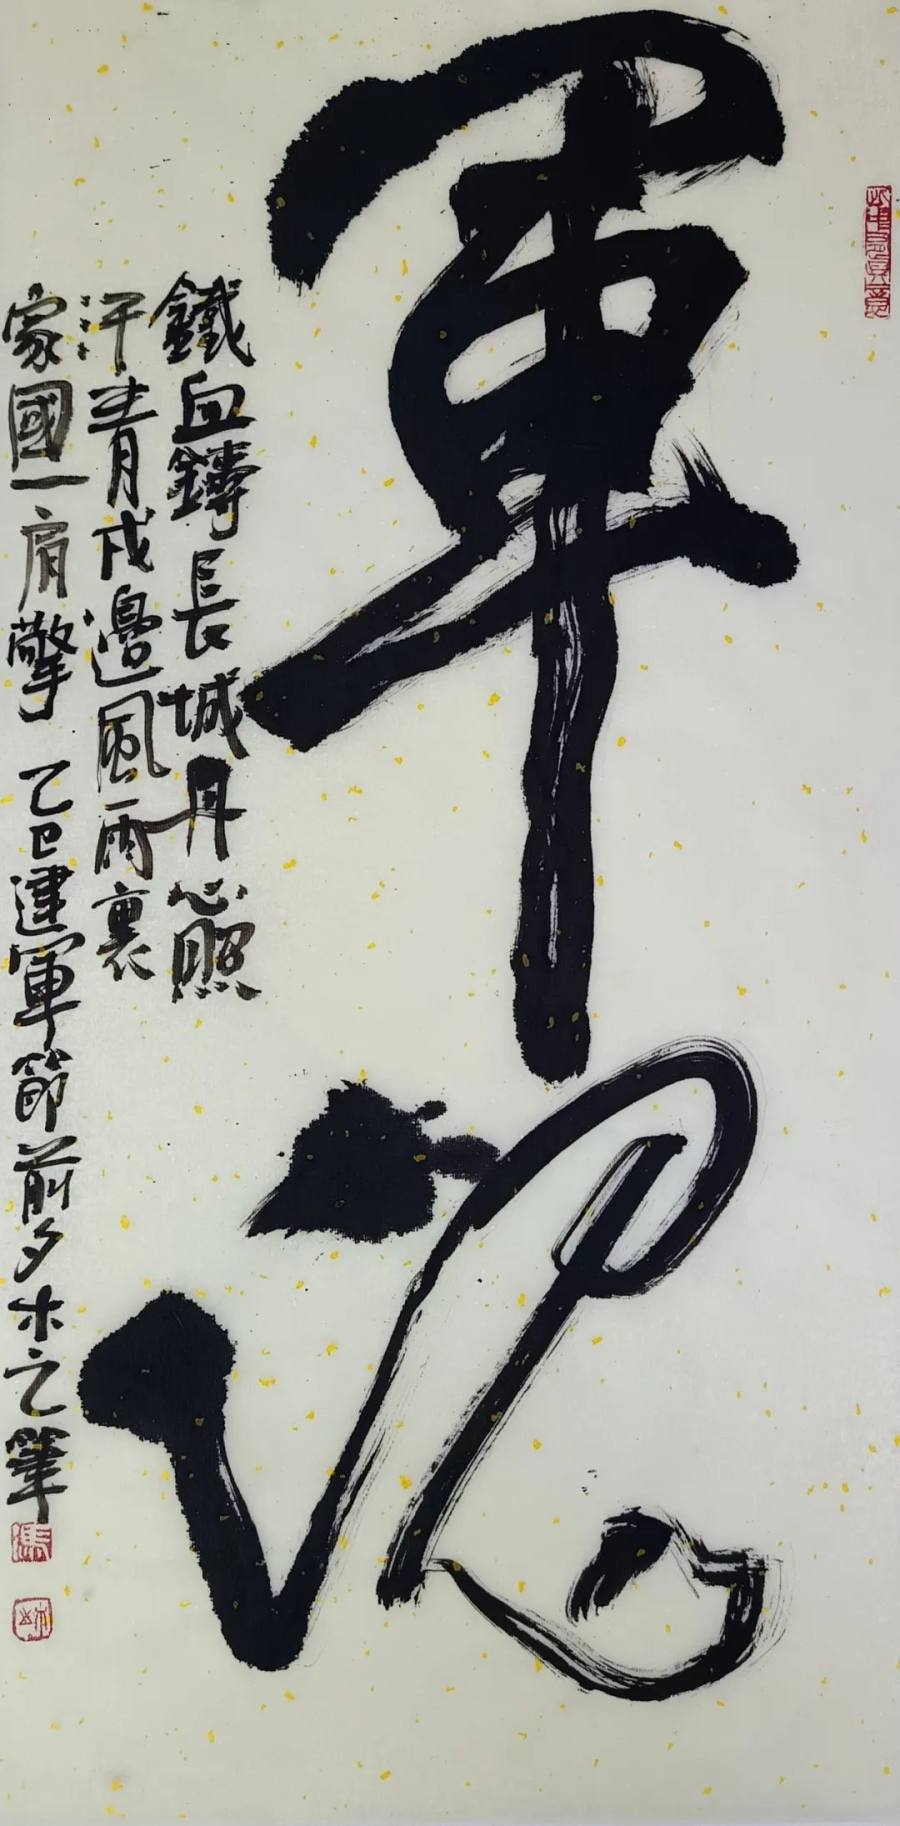 此中有真意
軍魂
鐵血鑄長城丹心照
汗青戍邊風雨裏
家國一肩擎 乙巳建軍節前夕木之筆
馮